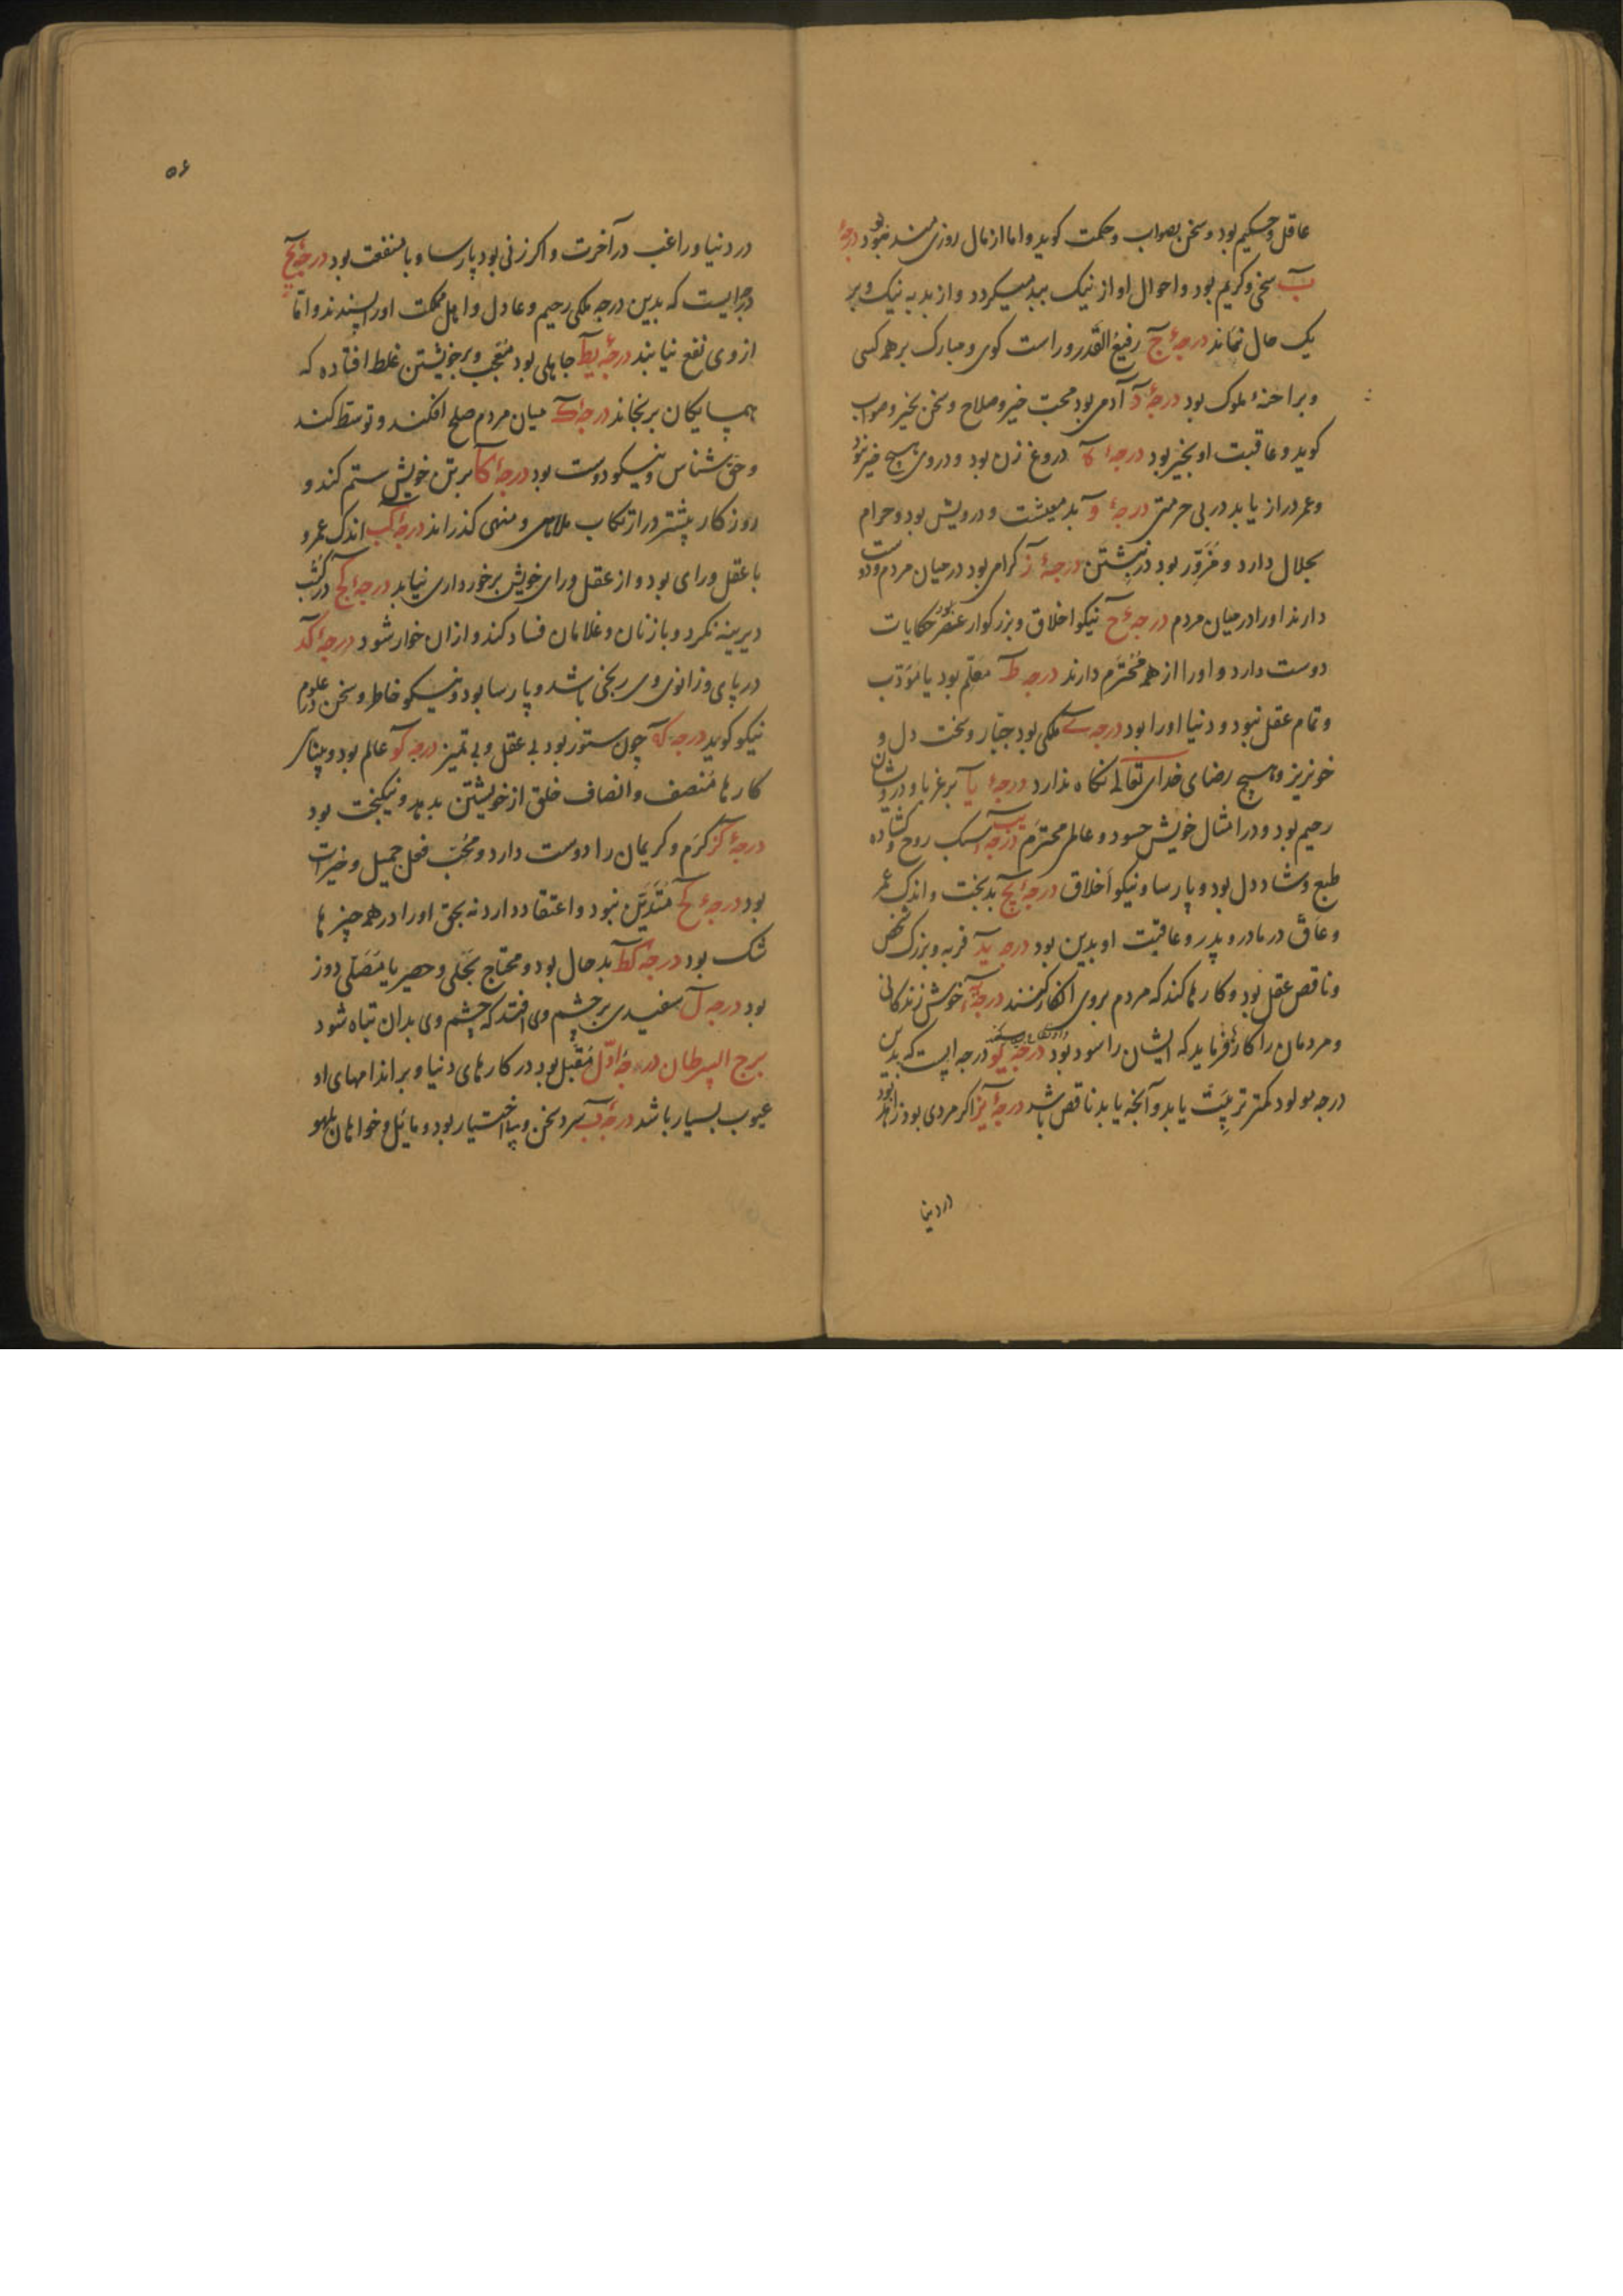 عاقل و حکیم بود و سخن بصواب و حکمت کوید و اما از مال روزی مند نبود درجهٔ
ب سخی و کریم بود و احوال او از نیک ببد میکردد و از بد به نیک و بر
یک حال نماند درجهٔ ج رفیع القدر و راست کوی و مبارک بر همه کسی
و براخنهٔ ملوک بود درجهٔ د آدمی بود محبت خیر و صلاح و سخن بخیر و صواب
کوید و عاقبت او بخیر بود درجهٔ دروغ زن بود و در وی هیچ خیر نبود
و عمر دراز یابد در بی حرمتی درجهٔ و بد معیشت و درویش بود و حرام
بحلال دارد و مزور بود در نبشتن درجهٔ ز کرامی بود در میان مردم و دوست
دارند او را در میان مردم درجهٔ ح نیکو اخلاق و بزرکوار عنصر بود حکایات
دوست دارد و او را از همه محترم دارند درجه ط معلم بود یا مؤدب
و تمام عقل نبود و دنیا او را بود درجه ی ملکی بود جبار و سخت دل و
خونریز و هیچ رضای خدای تعالی نکاه ندارد درجهٔ یا بر غربا و درویشان
رحیم بود و در امثال خویش حسود و عالمی محترم درجه یب سبک روح و کشاده
طبع و شاد دل بود و پارسا و نیکو اخلاق درجهٔ یج بدبخت و اندک عمر
و عاق در مادر و پدر و عاقبت او بدین بود درجه ید فربه و بزرک شخص
و ناقص عقل بود و کارها کند که مردم بر وی انکار کنند درجه یه خوش زندکانی
و مردمان را کار فرماید که ایشان را سود بود درجه یو درجه ایست که بدین
درجه مولود کمتر تربیت یابد و آنچه یابد ناقص باشد درجهٔ یز اکر مردی بود زاهد بود
در دنیا
۵۶
در دنیا و راغب در آخرت و اکر زنی بود پارسا و با منفعت بود درجهٔ یح
درجهٔ ایست که بدین درجه ملکی رحیم و عادل و اهل مملکت او را پسندند و اما
از وی نفع نیابند درجهٔ یط جاهلی بود معجب و بر خویشتن غلط افتاده که
همسایکان برنجاند درجهٔ ک میان مردم صلح افکند و توسط کند
و حق شناس و نیکو دوست بود درجهٔ کا بر تن خویش ستم کند و
روزکار بیشتر در ارتکاب ملاهی و منهی کذراند درجهٔ کب اندک عمر و
با عقل و رای بود و از عقل و رای خویش برخورداری نیابد درجهٔ کج در کتب
دیرینه نکرد و با زنان و غلامان فساد کند و ازان خوار شود درجهٔ کد
در پای و زانوی وی رنجی باشد و پارسا بود و نیکو خاطر و سخن در علوم
نیکو کوید درجه که چون ستور بود بی عقل و بی تمیز درجه کو عالم بود و بینای
کارها منصف و انصاف خلق از خویشتن بدهد و نیکبخت بود
درجهٔ کز کرم و کریمان را دوست دارد و محب فعل جمیل و خیرات
بود درجهٔ کح متدین نبود و اعتقاد دارد نه بحق او را در همه چیزها
شک بود درجه کط بد حال بود و محتاج بحلی و حصیر یا مصلی دوز
بود درجه ل سفیدی بر چشم وی افتد که چشم وی بدان تباه شود
برج السرطان درجهٔ اول مقبل بود در کارهای دنیا و بر اندامهای او
عیوب بسیار باشد درجهٔ ب سرد سخن و بی اختیار بود و مایل و خواهان بلهو